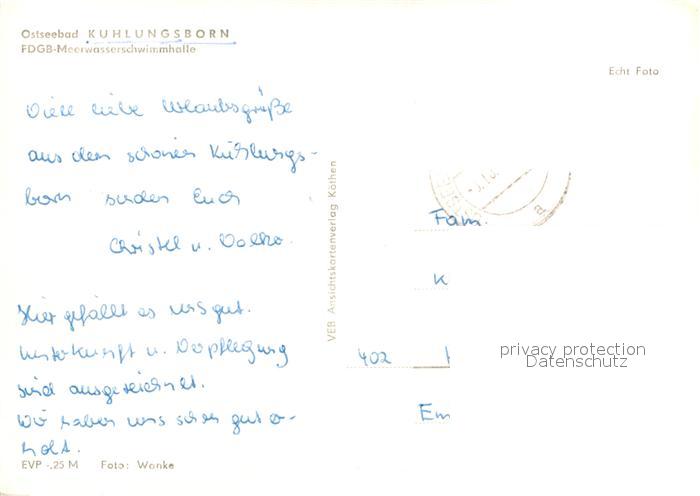 Ostseebad KUHLUNGSBORN
FDGB-Meerwasserschwimmhalle
Echt Foto
Viele liebe Urlaubsgrüße
aus dem schönen Kühlungs-
born senden Euch
Christel u.
Hier gefällt es uns gut.
Unterkunft u. Verpflegung
sind ausgezeichnet.
Wir haben uns schon gut er-
holt.
EVP -,25 M Foto: Wanke
VEB Ansichtskartenverlag Köthen
Fam.
K
402
Em
privacy protection
Datenschutz